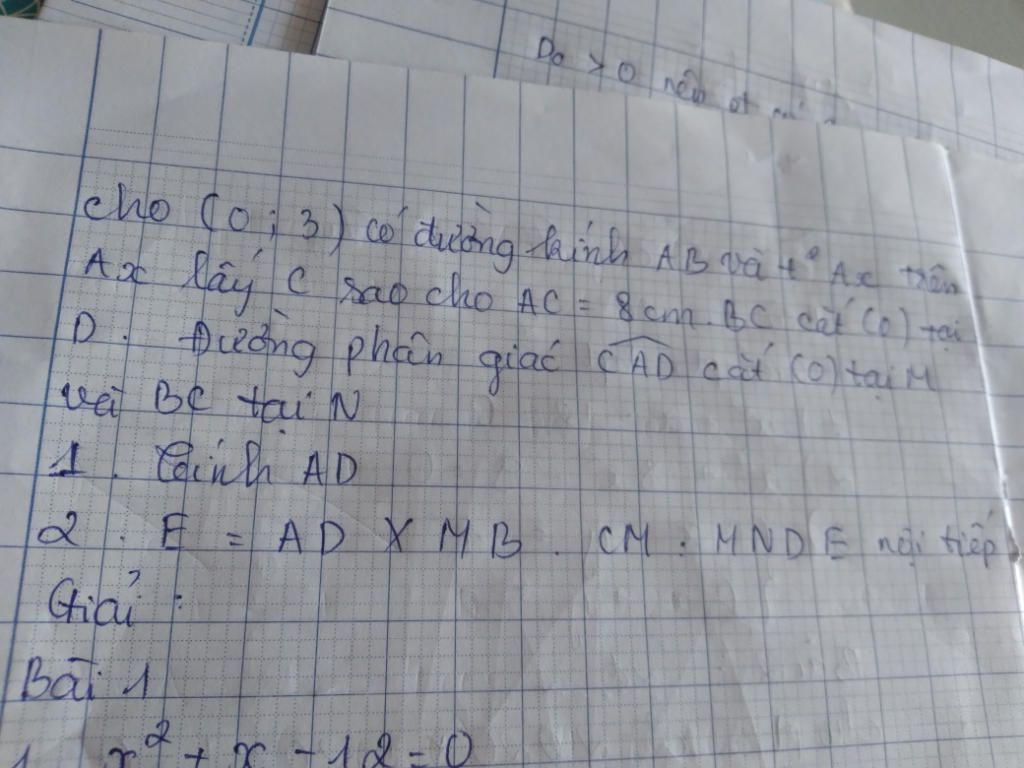 Do > 0 nên
cho (O ; 3) có đường kính AB và t° Ax trên
Ax lấy C sao cho AC = 8cm. BC cắt (O) tại
D. Đường phân giác CAD cắt (O) tại M
và BC tại N
1. Tính AD
2. E = AD X MB. CM : MNDE nội tiếp
Giải :
Bài 1
1 x² + x - 12 = 0